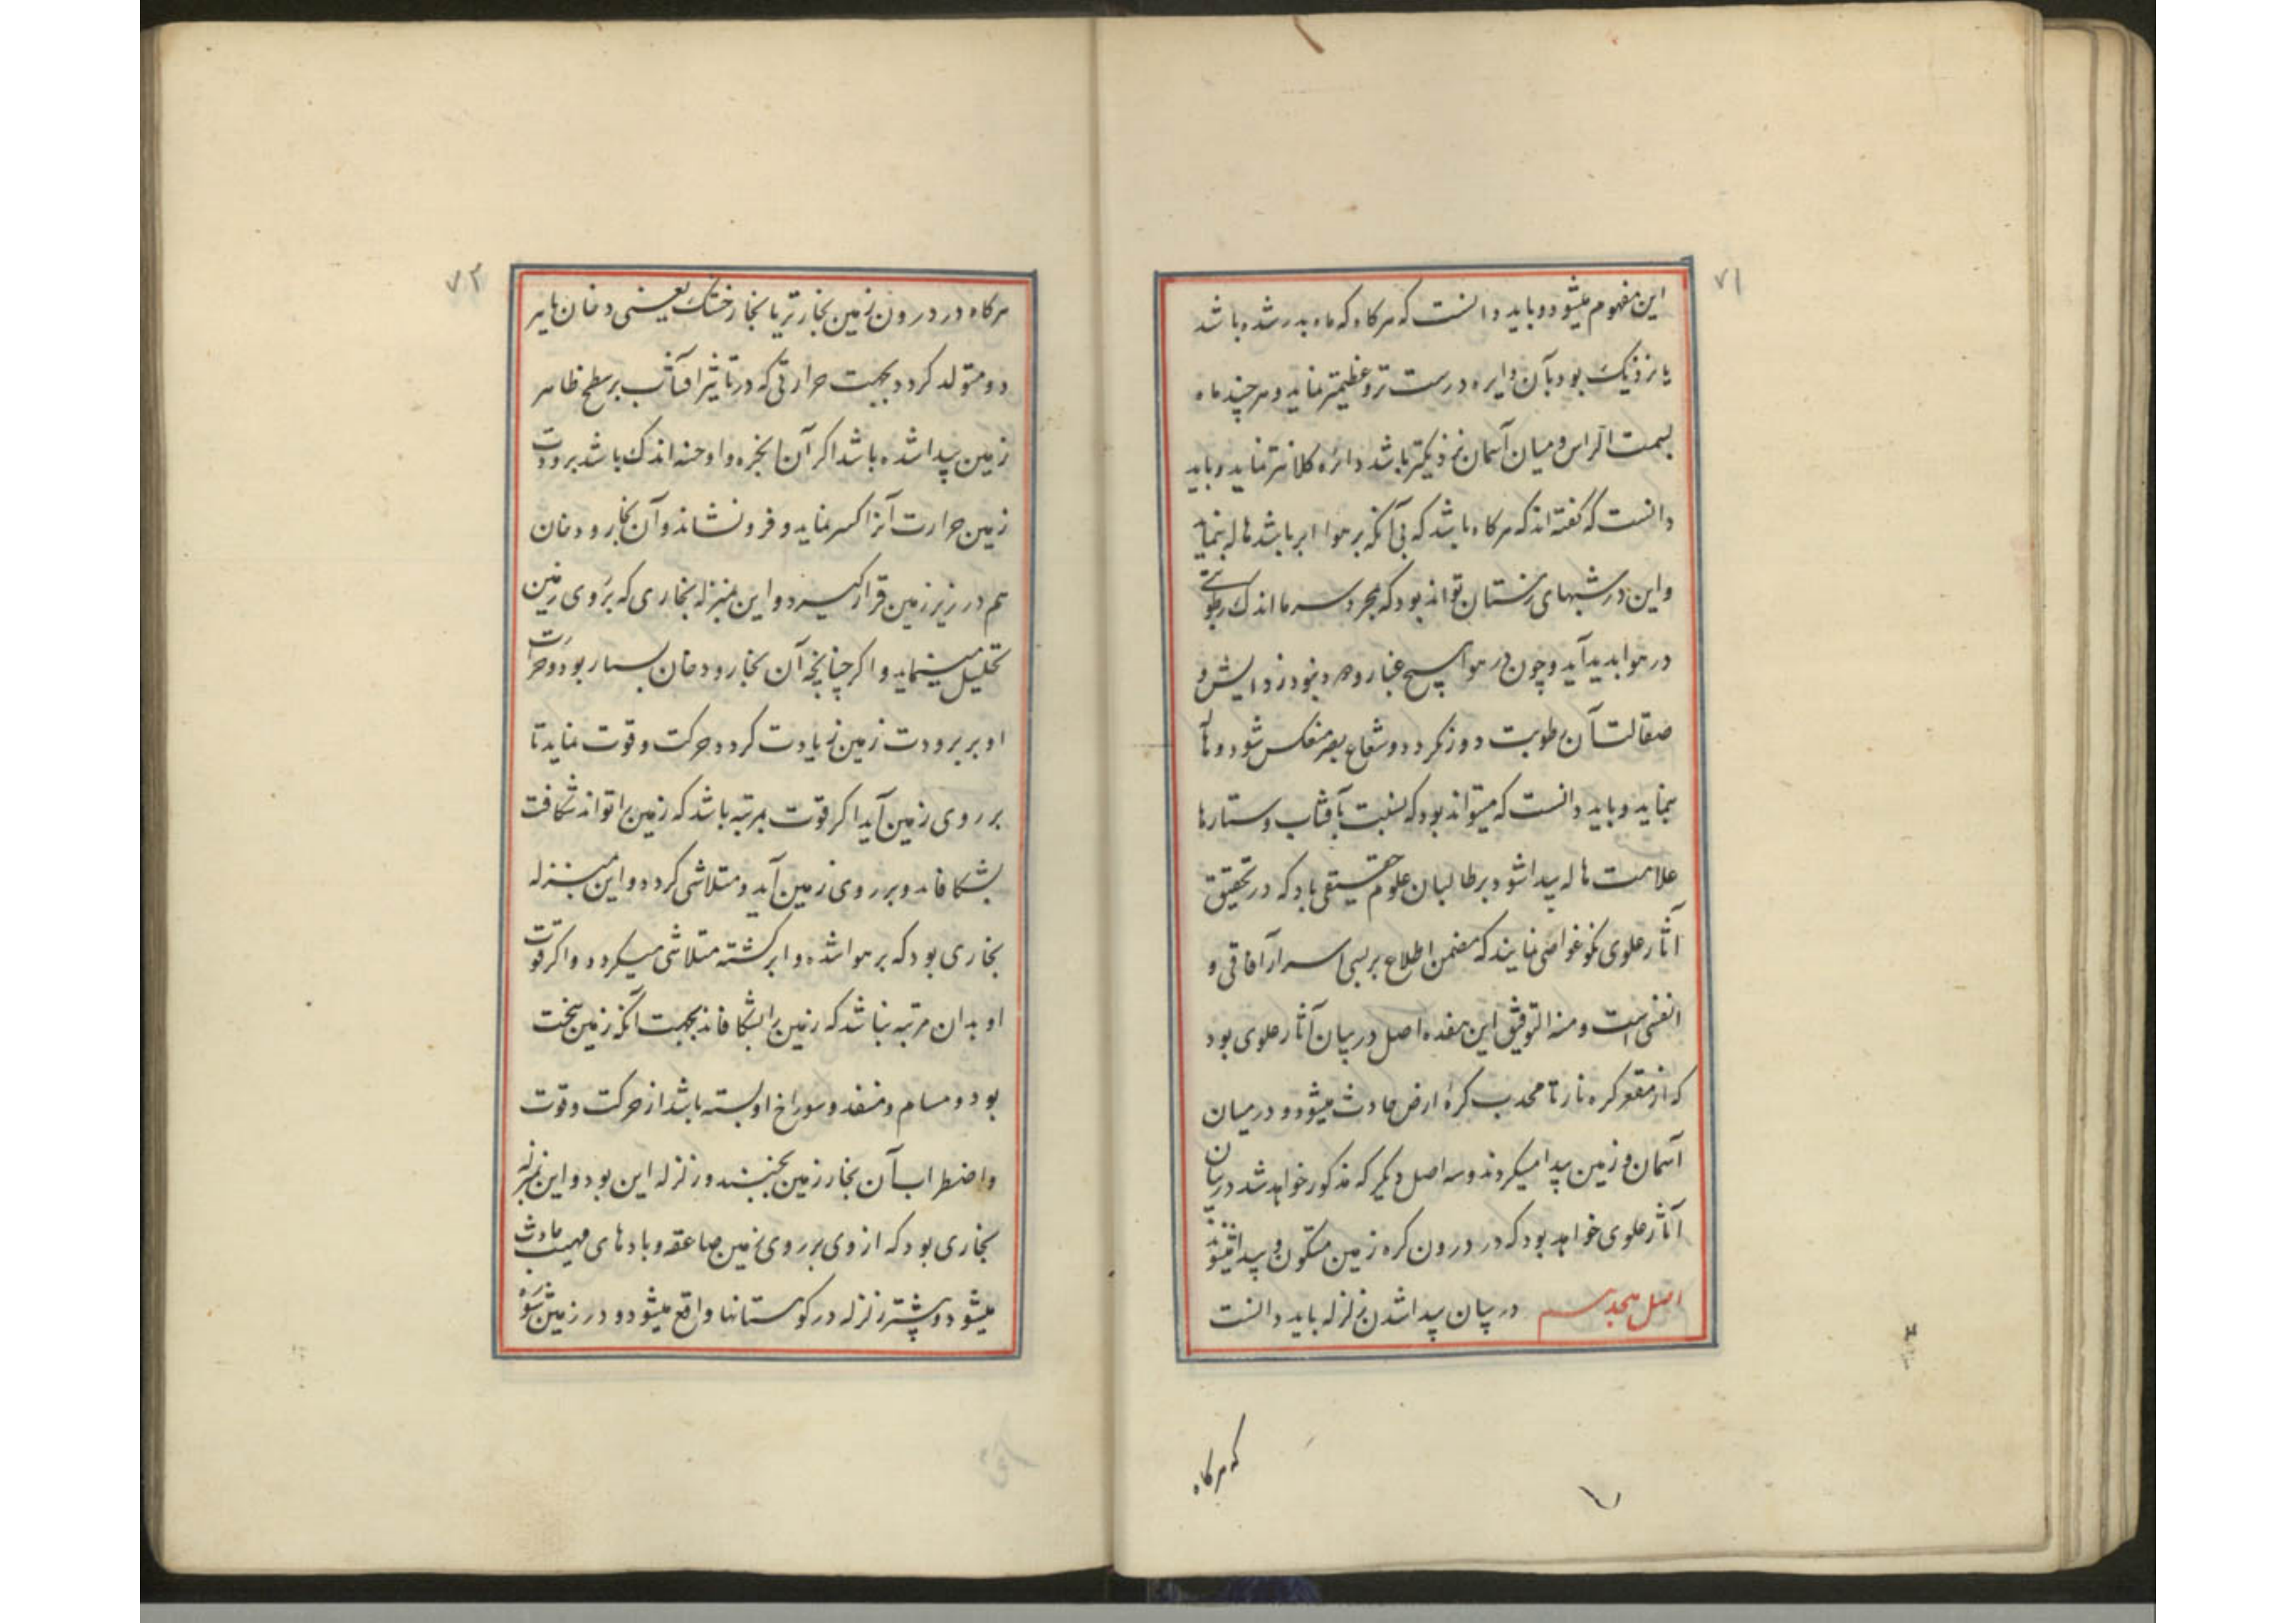 ۷۱
این مفهوم میشود و باید دانست که هرکاه که ماه بدر شده باشد
یا نزدیک بود بآن دایره درست تر و عظیمتر نماید و هر چند ماه
بسمت الراس و میان آسمان نزدیکتر باشد دائره کلانتر نماید و باید
دانست که گفته اند که هرکاه باشد که بی آنکه بر هوا ابر باشد هاله بنماید
و این در شبهای زمستان تواند بود که بمجرد سرما اندک رطوبتی
در هوا بدید آید و چون در هوا هیچ غبار و دود نبود زدایش و
صقالت آن رطوبت دور نکردد و شعاع بصر منعکس شود و هاله
بنماید و باید دانست که میتواند بود که بنسبت بآفتاب و ستارها
علامت هاله پیدا شود بر طالبان علوم حقیقی باد که در تحقیق
آثار علوی نکو غواصی نمایند که متضمن اطلاع بر بسی اسرار آفاقی و
انفسی است و منه التوفیق این هفده اصل در بیان آثار علوی بود
که از مقعر کره نار تا محدب کرهٔ ارض حادث میشود و در میان
آسمان و زمین پیدا میکردند و سه اصل دیگر که مذکور خواهد شد در بیان
آثار علوی خواهد بود که در درون کره زمین متکون و پیدا میشوند
اصل هجدهم در بیان پیدا شدن زلزله باید دانست
که هرکاه
۷۲
هرکاه در درون زمین بخار تر یا بخار خشک یعنی دخان باهر
دو متولد کردد بجهت حرارتی که در تاثیر افتاب بر سطح ظاهر
زمین پیدا شده باشد اکر آن ابخره و ادخنه اندک باشد برودت
زمین حرارت آنرا کسر نماید و فرو نشاند و آن بخار و دخان
هم در زیر زمین قرار کیرد و این بمنزله بخاری که بر روی زمین
تحلیل مینماید و اکر چنانچه آن بخار و دخان بسیار بود و حرارت
او بر برودت زمین زیادت کردد و حرکت و قوت نماید تا
بر روی زمین آید اکر قوت بمرتبه باشد که زمین را تواند شکافت
بشکافاند و بر روی زمین آید و متلاشی کردد و این بمنزله
بخاری بود که بر هوا شده و ابر کشته متلاشی میکردد و اکر قوت
او بدان مرتبه نباشد که زمین را بشکافاند بجهت آنکه زمین سخت
بود و مسام و منفذ و سوراخ او بسته باشد از حرکت و قوت
و اضطراب آن بخار زمین بجنبند و زلزله این بود و این بمنزله
بخاری بود که از وی بر روی زمین صاعقه و بادهای مهیب حادث
میشود و بیشتر زلزله در کوهستانها واقع میشود و در زمین